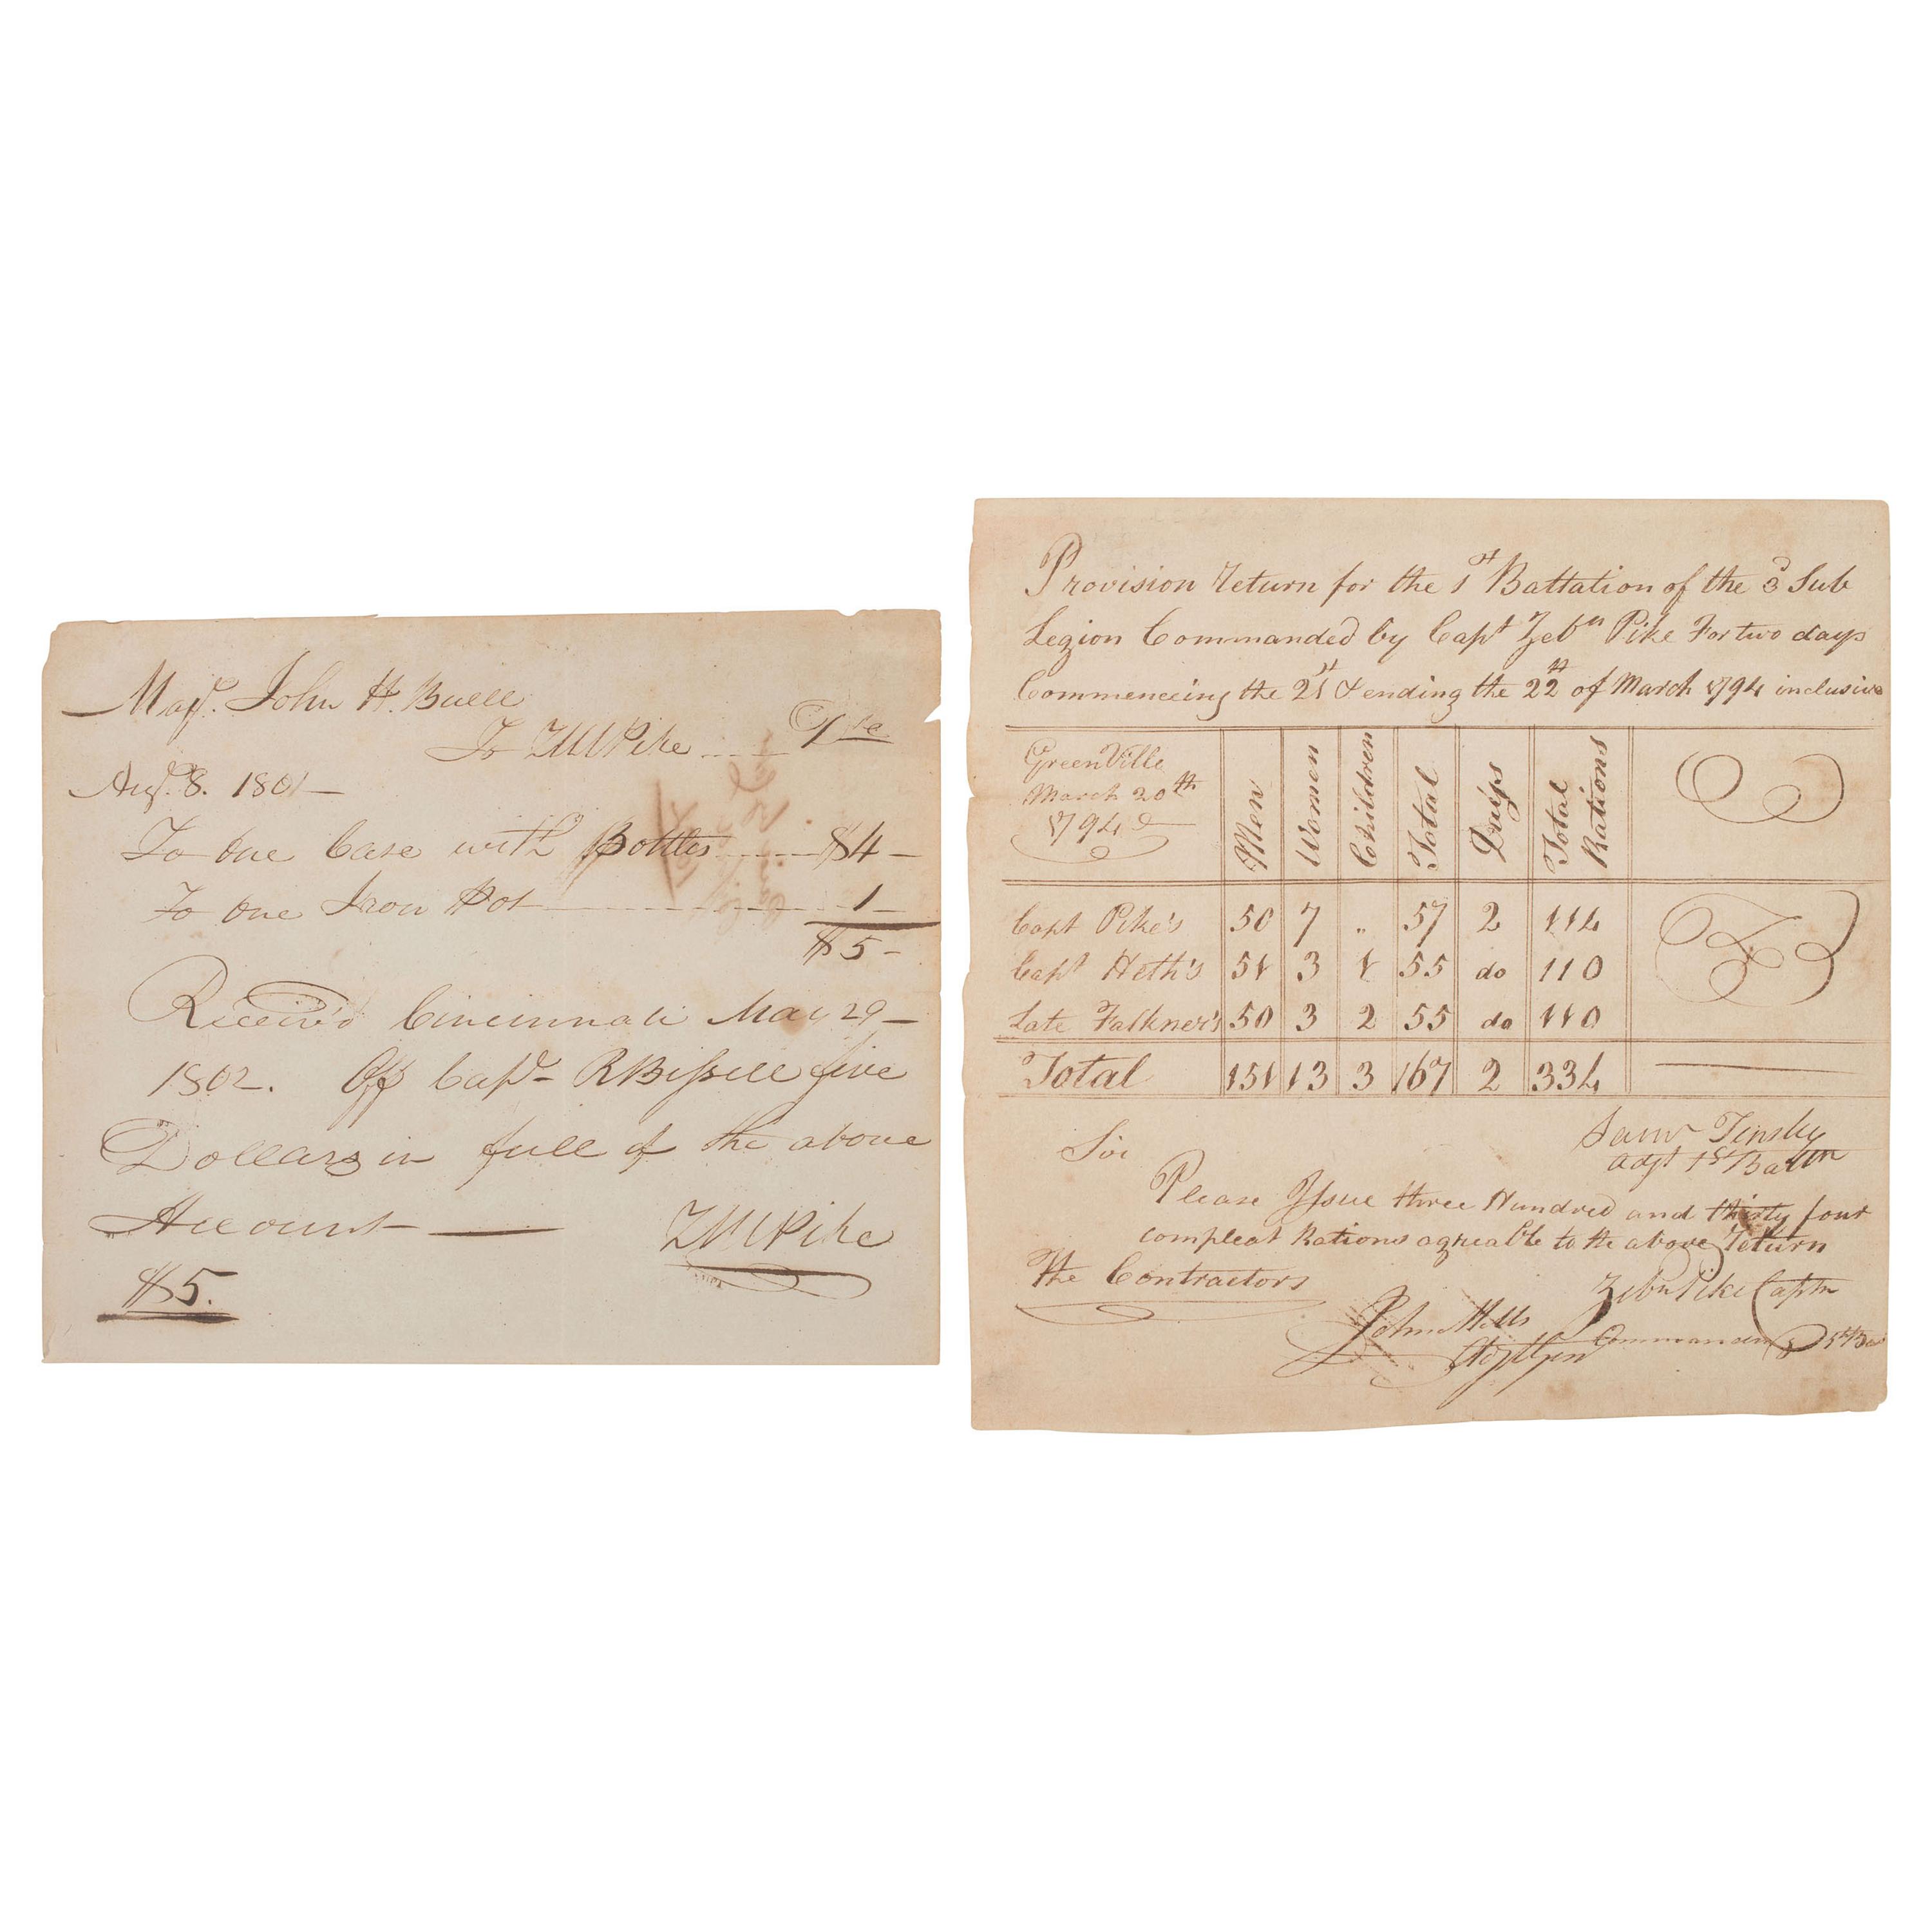 Majr. John H. Buell
To Z M Pike Dr
Augt. 8. 1801
To one Case with Bottles $4
To one Iron Pot 1
$5
Received Cincinnati May 29
1802. Off Capt R Bissell five
Dollars in full of the above
Account
Z M Pike
$5.
Provision Return for the 1st Battation of the 3d Sub
Legion Commanded by Capt Zebn Pike For two days
Commenceing the 21st & ending the 22th of March 1794 inclusive
GreenVille
March 20th
1794
Men Women Children Total Days Total Rations
Capt Pike's 50 7 " 57 2 114
Capt Heth's 51 3 1 55 do 110
Late Falkner's 50 3 2 55 do 110
Total 151 13 3 167 2 334
Saml Tinsley
Adjt 1st Battn
Sir
Please Issue three Hundred and thirty four
compleat Rations agreable to the above Return
The Contractors
Zebn Pike Captn
Commanding 1st Ba
John Mills
Adjt Gen